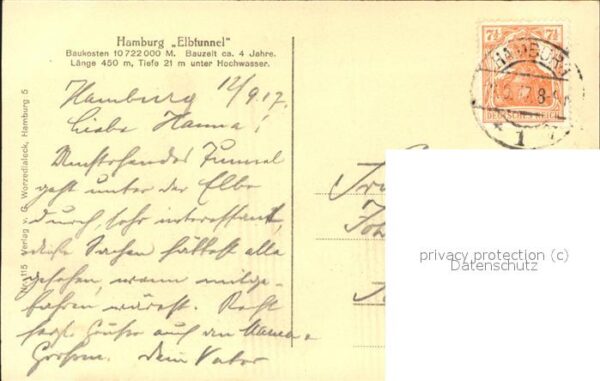 Hamburg „Elbtunnel"
Baukosten 10 722 000 M. Bauzeit ca. 4 Jahre.
Länge 450 m, Tiefe 21 m unter Hochwasser.
Hamburg 12/9.17.
Liebe Hanna!
Umstehender Tunnel
geht unter der Elbe
durch, sehr interessant,
diese Sachen hättest alle
gesehen, wenn mitge-
fahren wärest. Recht
herzl. Grüße auch an Mama
dein Vater
Nr. 115 Verlag v. G. Worzedialeck, Hamburg 5
7½ 7½
DEUTSCHES REICH
HAMBURG
1
privacy protection (c)
Datenschutz